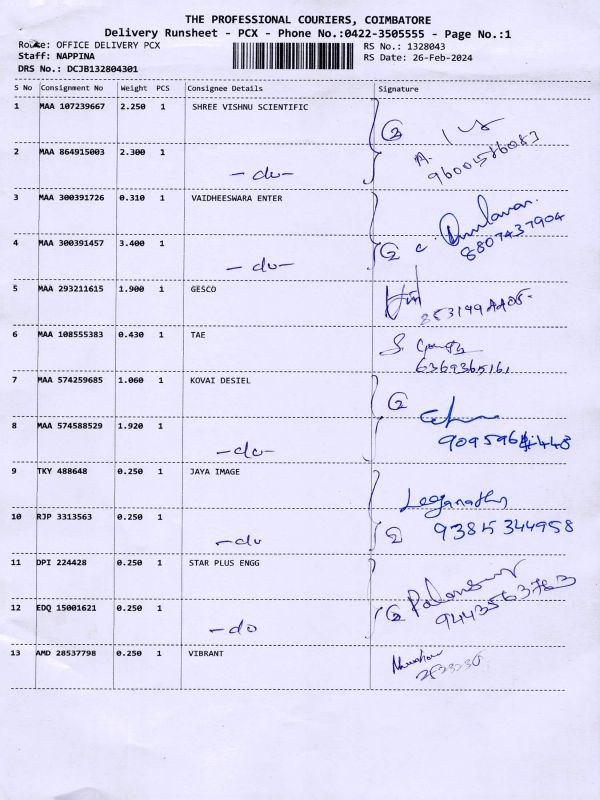 THE PROFESSIONAL COURIERS, COIMBATORE
Delivery Runsheet - PCX - Phone No.:0422-3505555 - Page No.:1
Route: OFFICE DELIVERY PCX
RS No.: 1328043
Staff: NAPPINA
RS Date: 26-Feb-2024
DRS No.: DCJB132804301
S No Consignment No Weight PCS Consignee Details Signature
1 MAA 107239667 2.250 1 SHREE VISHNU SCIENTIFIC
2
2 MAA 864915003 2.300 1 -do-
A.
9600586083
3 MAA 300391726 0.310 1 VAIDHEESWARA ENTER
4 MAA 300391457 3.400 1 -do-
2 C.
8807437904
5 MAA 293211615 1.900 1 GESCO
6 MAA 108555383 0.430 1 TAE
S.
6369365161
7 MAA 574259685 1.060 1 KOVAI DESIEL
2
8 MAA 574588529 1.920 1 -do-
9 TKY 488648 0.250 1 JAYA IMAGE
10 RJP 3313563 0.250 1 -do
2 9385344958
11 DPI 224428 0.250 1 STAR PLUS ENGG
12 EDQ 15001621 0.250 1 -do
2
9443563763
13 AMD 28537798 0.250 1 VIBRANT